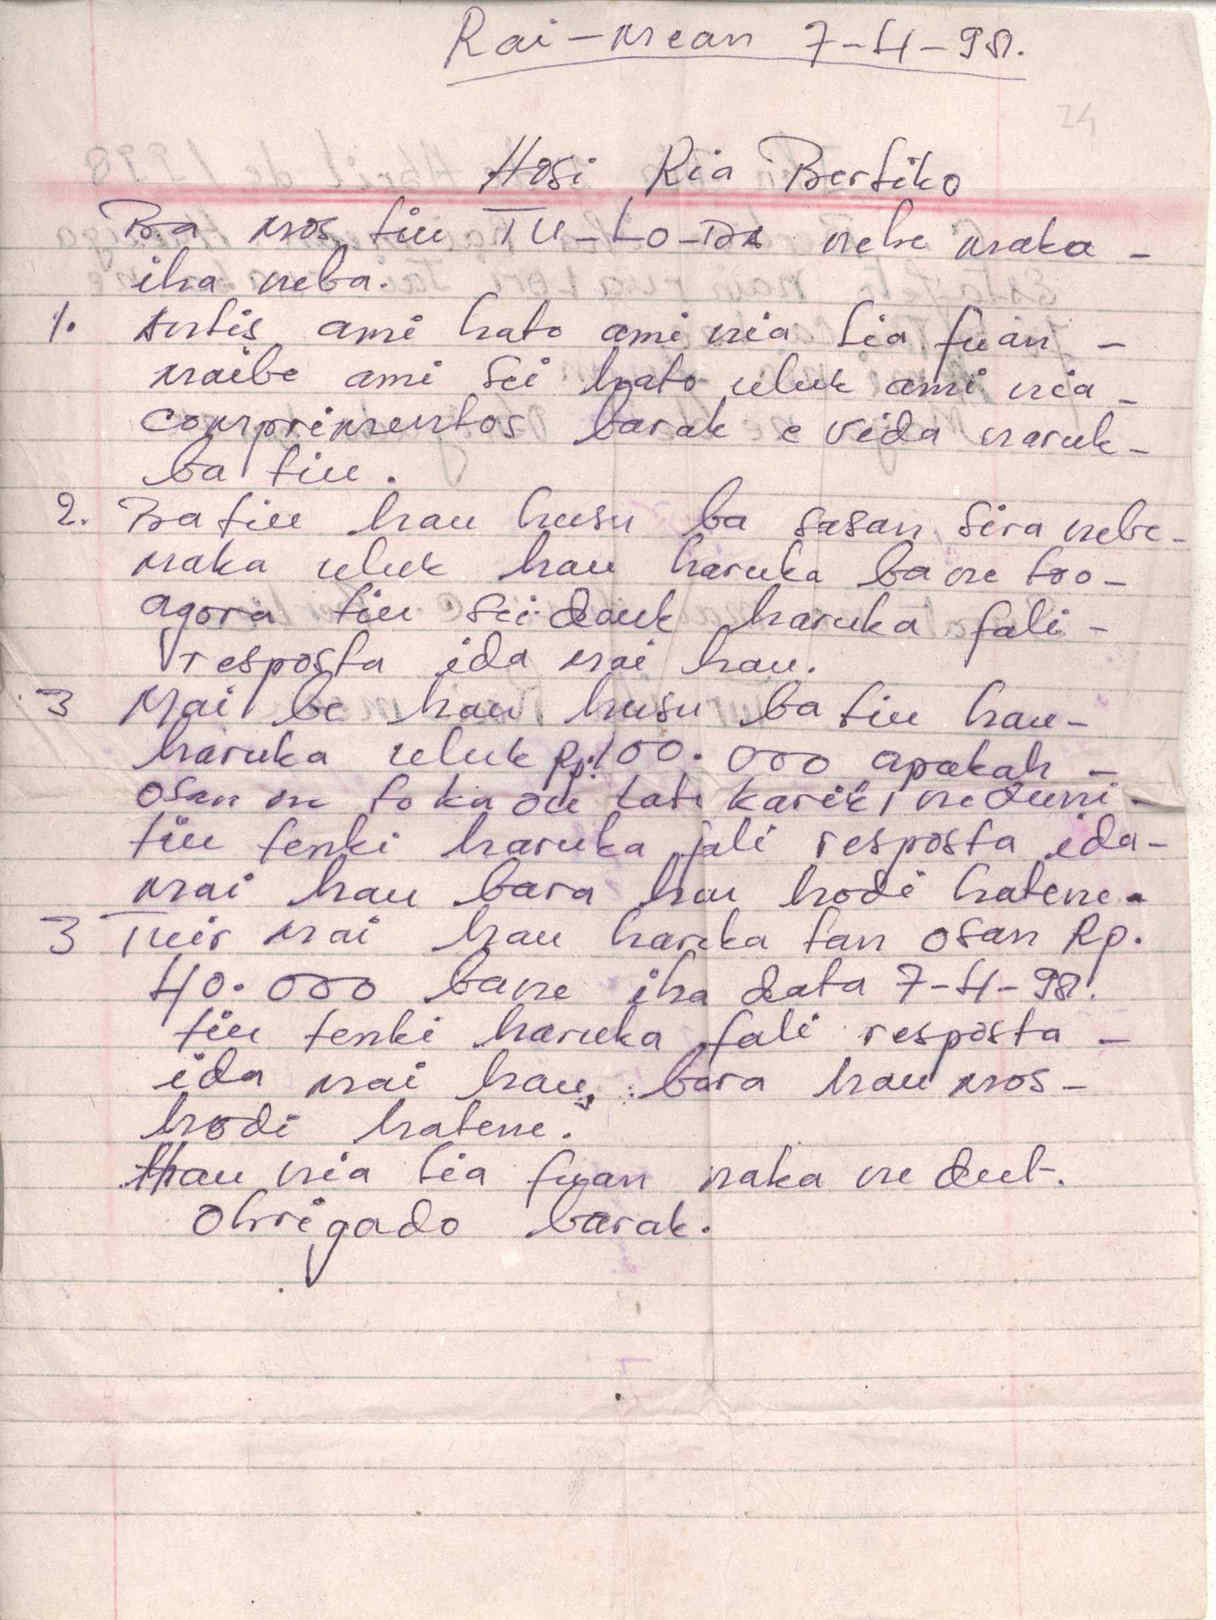 Rai-mean 7-4-98.
24
Hosi Ria Bertiko
Ba mos tiu TU-LO-DA nebe maka -
iha neba.
1. Antis ami hato ami nia lia fuan -
maibe ami sei hato uluk ami nia -
comprimentos barak e vida naruk -
ba tiu.
2. Ba tiu hau husu ba sasan sira nebe -
maka uluk hau haruka ba ne to o -
agora tiu sei dauk haruka fali -
resposta ida mai hau.
3 Mai be hau husu ba tiu hau -
haruka uluk Rp. 100.000 apakah -
osan ne to ka ou lati karik, ne duni -
tiu tenki haruka fali resposta ida -
mai hau bara hau hodi hatene.
3 Tuir mai hau haruka tan osan Rp.
40.000 bane iha data 7-4-98.
tiu tenki haruka fali resposta -
ida mai hau, bara hau mos -
hodi hatene.
Hau nia lia fuan maka ne deut.
Obrigado barak.